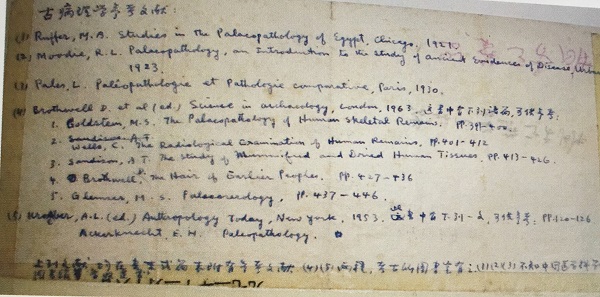 古病理学参考文献：
(1) Ruffer, M.A. Studies in the Palaeopathology of Egypt, Chicago, 1921.
(2) Moodie, R.L. Palaeopathology, an Introduction to the study of ancient Evidences of Disease, Urbana
1923.
(3) Pales, L. Paléopathologie et Pathologie comparative, Paris, 1930.
(4) Brothwell D. et al (ed.) Science in archaeology, London, 1963. 这书中有下列诸篇,可供参考:
1. Goldstein, M.S. The Palaeopathology of Human Skeletal Remains. PP.391-400.
2. Sandison A.T.
Wells, C. The Radiological Examination of Human Remains, PP.401-412
3. Sandison, A.T. The Study of Mummified and Dried Human Tissues, PP.413-426.
4. Brothwell, The Hair of Earlier Peoples, PP.427-436
5. M.S. Palaeoserology, PP.437-446.
(5) Kroeber, A.L. (ed.) Anthropology Today, New York, 1953. 这书中有下列一文,可供参考: PP.120-126
Ackerknecht, E.H. Paleopathology.
上列文献, (4)(5)两种, 考古所图书室有; (1)(2)(3)不知中国医